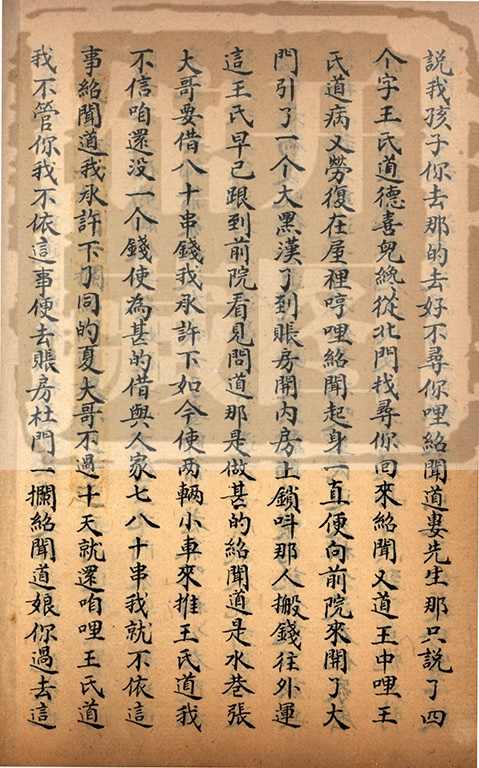 說我孩子你去那的去好不尋你哩紹聞道婁先生那只說了四
个字王氏道德喜兒纔從北門找尋你回來紹聞又道王中哩王
氏道病又勞復在屋裡哼哩紹聞起身一直便向前院來開了大
門引了一个大黑漢了到賬房開內房上鎖呌那人搬錢往外運
這王氏早已跟到前院看見問道那是做甚的紹聞道是水巷張
大哥要借八十串錢我承許下如今使两輛小車來推王氏道我
不信咱還没一个錢使為甚的借與人家七八十串我就不依這
事紹聞道我承許下了同的夏大哥不過十天就還咱哩王氏道
我不管你我不依這事便去賬房杜門一攔紹聞道娘你過去這